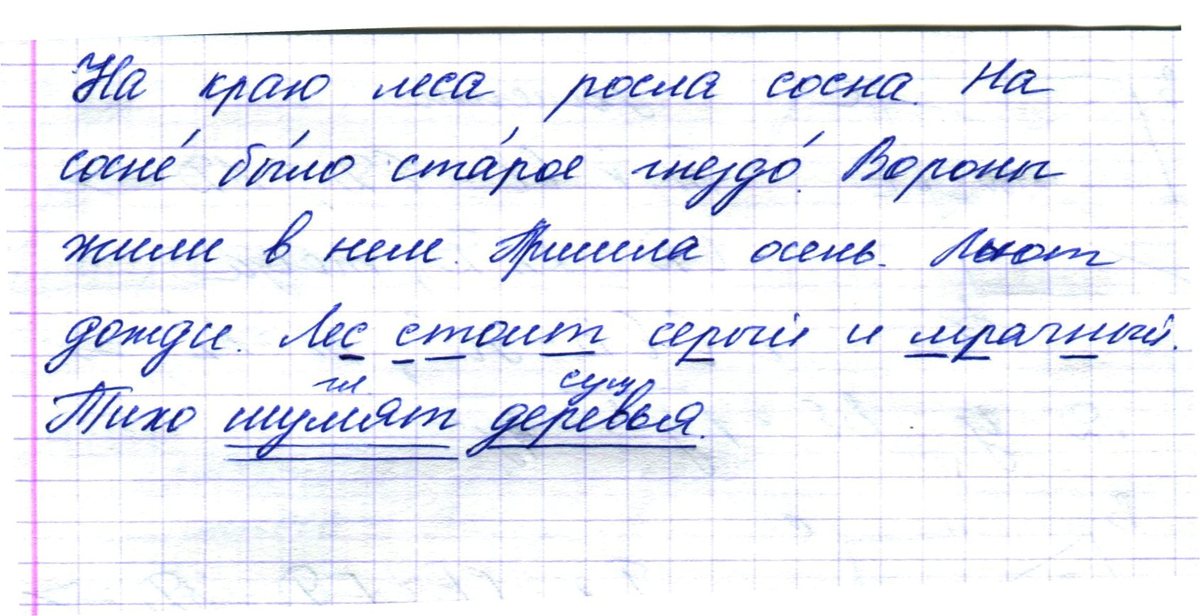 На краю леса росла сосна. На
сосне́ бы́ло ста́рое гнездо́. Вороны
жили в нем. Пришла осень. Льют
дожди. Лес стоит серый и мрачный.
гл сущ
Тихо шумят деревья.